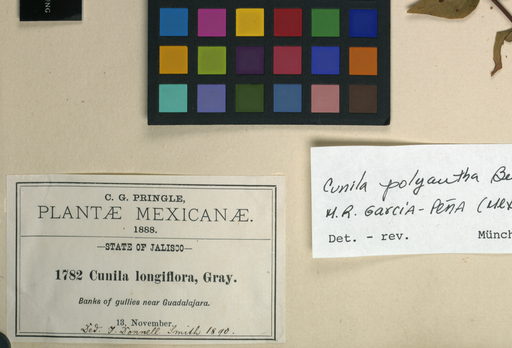 C. G. PRINGLE,
PLANTÆ MEXICANÆ.
1888.
—STATE OF JALISCO—
1782 Cunila longiflora, Gray.
Banks of gullies near Guadalajara.
13. November.
Ded. J. Donnell Smith 1890.
Cunila polyantha Be
M.R. García-Peña (Mex
Det. - rev. Münch